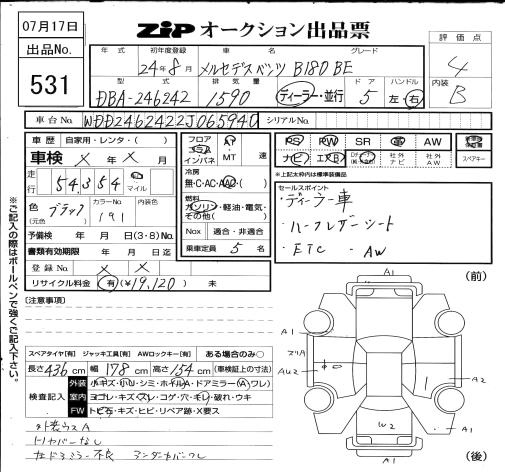 07月17日
ZiP オークション出品票
出品No.
531
評価点
4
内装
B
年式 初年度登録 車名 グレード
24年8月 メルセデスベンツ B180 BE
型式 排気量 ドア ハンドル
DBA-246242 1590 ディーラー・並行 5 左・右
車台No. WDD2462422J065940 シリアルNo.
車歴 自家用・レンタ・( )
車検 × 年 × 月
走行 54,354 マイル
色(元色) ブラック カラーNo. 191 内装色
予備検 年 月 日(3・8)No.
書類有効期限 年 月 日迄
登録No. × ×
リサイクル料金 有 (¥19,120) 未
フロア AT
インパネ ・MT 速
冷房
無・C・AC・AAC・( )
燃料
ガソリン・軽油・電気・
その他( )
Nox 適合・非適合
乗車定員 5 名
PS PW SR AW
ナビ エアB 社外ナビ 社外AW スペアキー
※上記太枠内は標準装備品
セールスポイント
・ディーラー車
・ハーフレザーシート
・ETC ・AW
※ご記入の際はボールペンで強くご記入下さい。
(注意事項)
スペアタイヤ[有] ジャッキ工具[有] AWロックキー[有] ある場合のみ○
長さ 436 cm 幅 178 cm 高さ 154 cm (車検証上の寸法)
検査記入
外装 小キズ・小U・シミ・ホイルA・ドアミラー(A・ワレ)
室内 ヨゴレ・キズ・スレ・コゲ・穴・キレ・破れ・ウキ
FW トビ石・キズ・ヒビ・リペア跡・X要ス
外装ウスA
トノカバーなし
アンダーカバーワレ
(前)
A1
A1
A1
AU2
A2
W2
A1
(後)